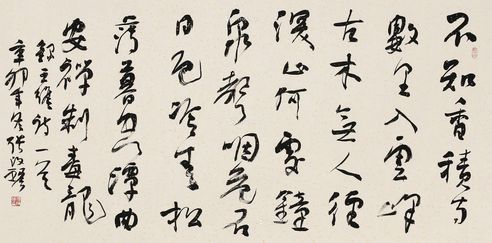 不知香積寺
數里入雲峰
古木無人徑
深山何處鐘
泉聲咽危石
日色冷青松
薄暮空潭曲
安禪制毒龍
錄王維詩一首
辛卯年冬張